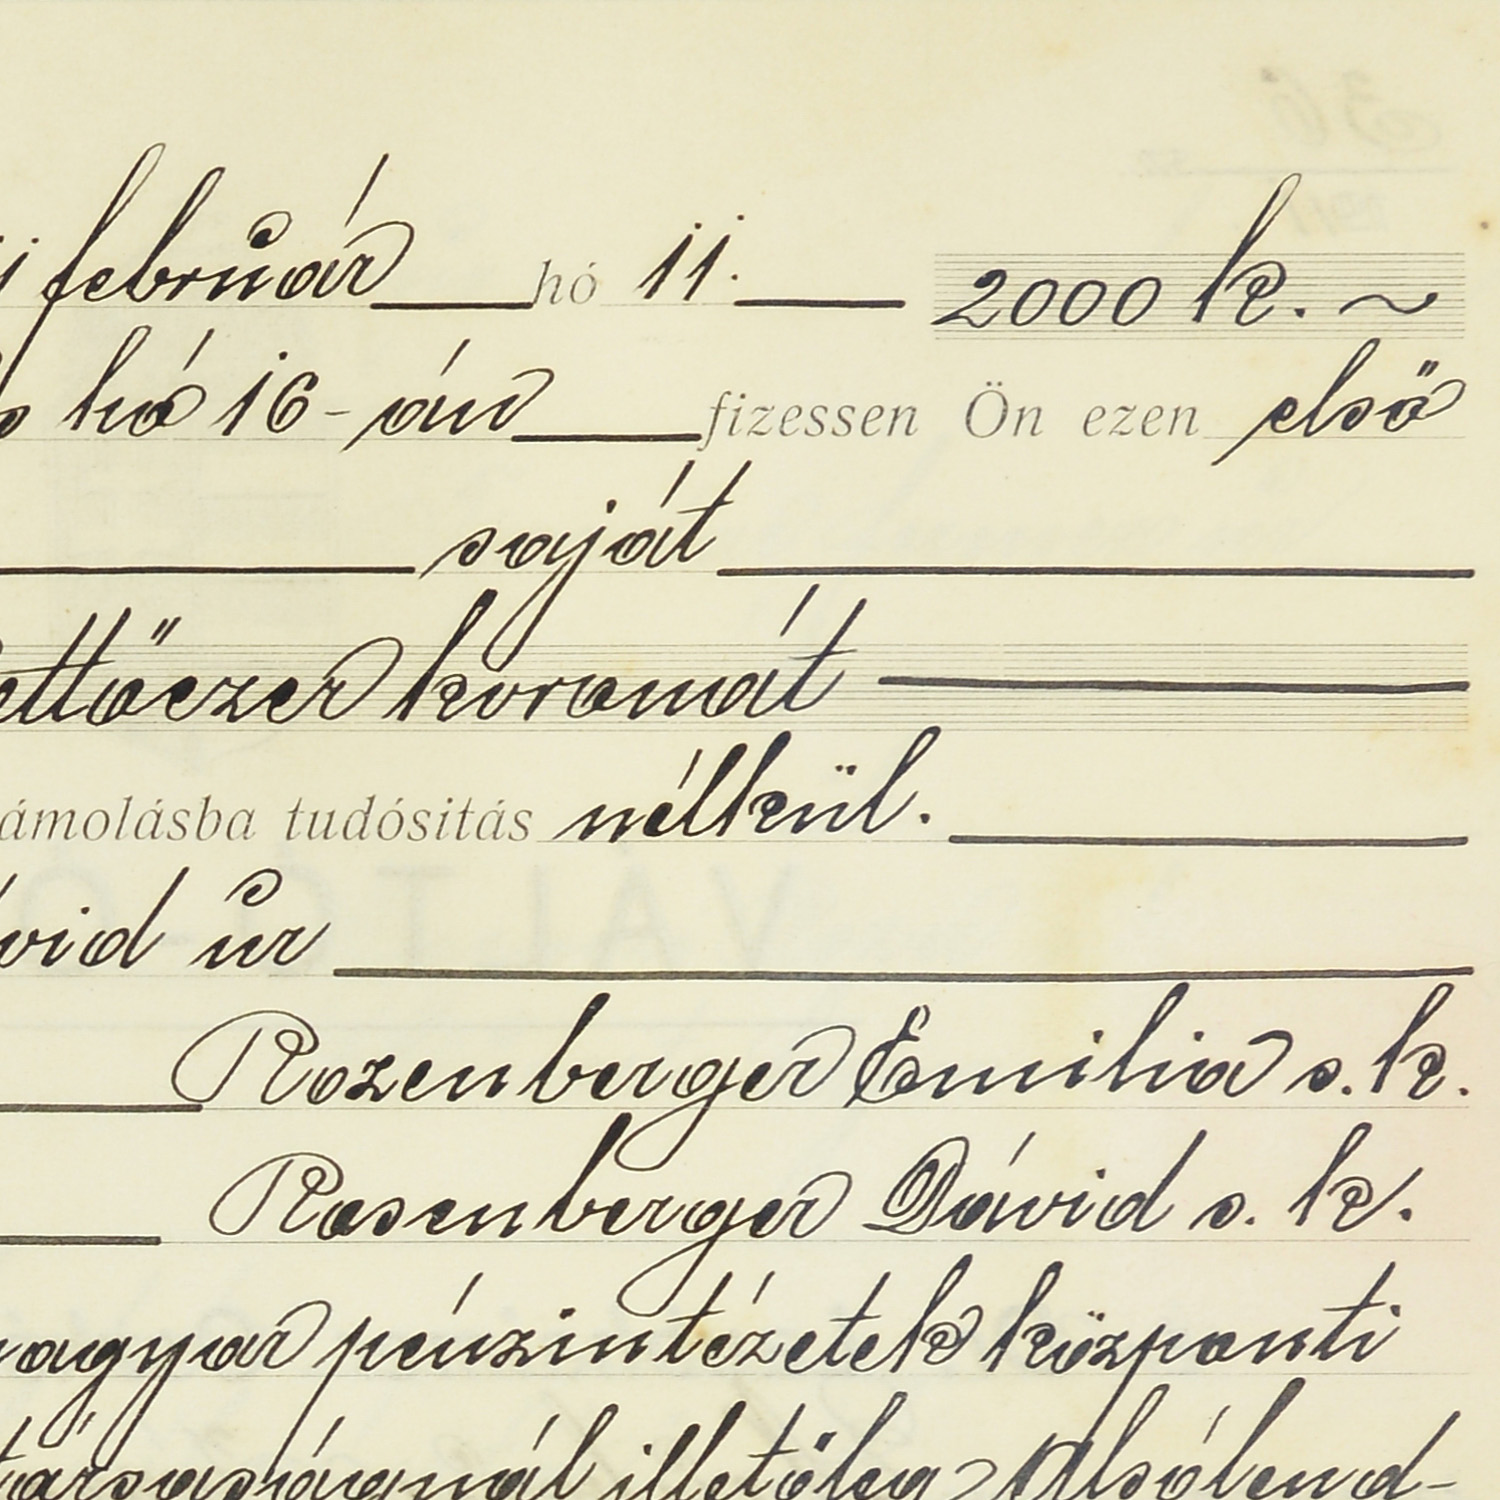 február hó 11. 2000 k. ~
hó 16-án fizessen Ön ezen első
saját
ettőezer koronát
ámolásba tudósitás nélkül.
vid úr
Rozenberger Emilia s. k.
Rosenberger Dávid s. k.
magyar pénzintézetek központi
társaságnál illetőleg Alsólend-